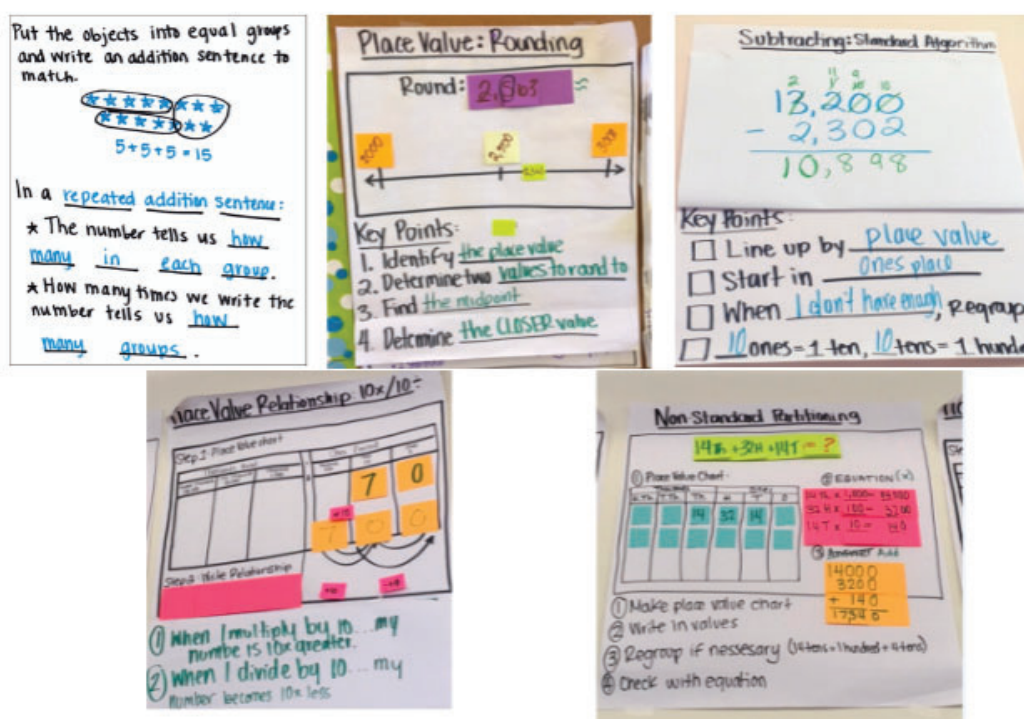 Put the objects into equal groups
and write an addition sentence to
match.
5+5+5=15
In a repeated addition sentence:
* The number tells us how
many in each group.
* How many times we write the
number tells us how
many groups.
Place Value: Rounding
Round: 2,563 ≈
2,500
Key Points:
1. Identify the place value
2. Determine two values to rand to
3. Find the midpoint
4. Detemine the CLOSER value
Subtracting: Standard Algorithm
13,200
- 2,302
10,898
Key Points:
Line up by place value
Start in ones place
When I don't have enough, Regroup
10 ones = 1 ten, 10 tens = 1 hund
lace Value Relationship: 10x/10÷
Step 1: Place Value chart
7 0
7 0 0
Step 2: Write Relationship
① When I multiply by 10... my
numbe is 10x greater.
② When I divide by 10... my
number becomes 10x less
Non-Standard Partitioning
14Th +32H +14T = ?
① Place Value Chart
② EQUATION(x)
14 32 14
14 Th x 1,000= 14000
32 H x 100 = 3200
14 T x 10 = 140
③ Answer Add
14000
3200
+ 140
17340
① Make place value chart
② Write in values
③ Regroup if nessesary (14tens=1hundred+4tens)
④ Check with equation